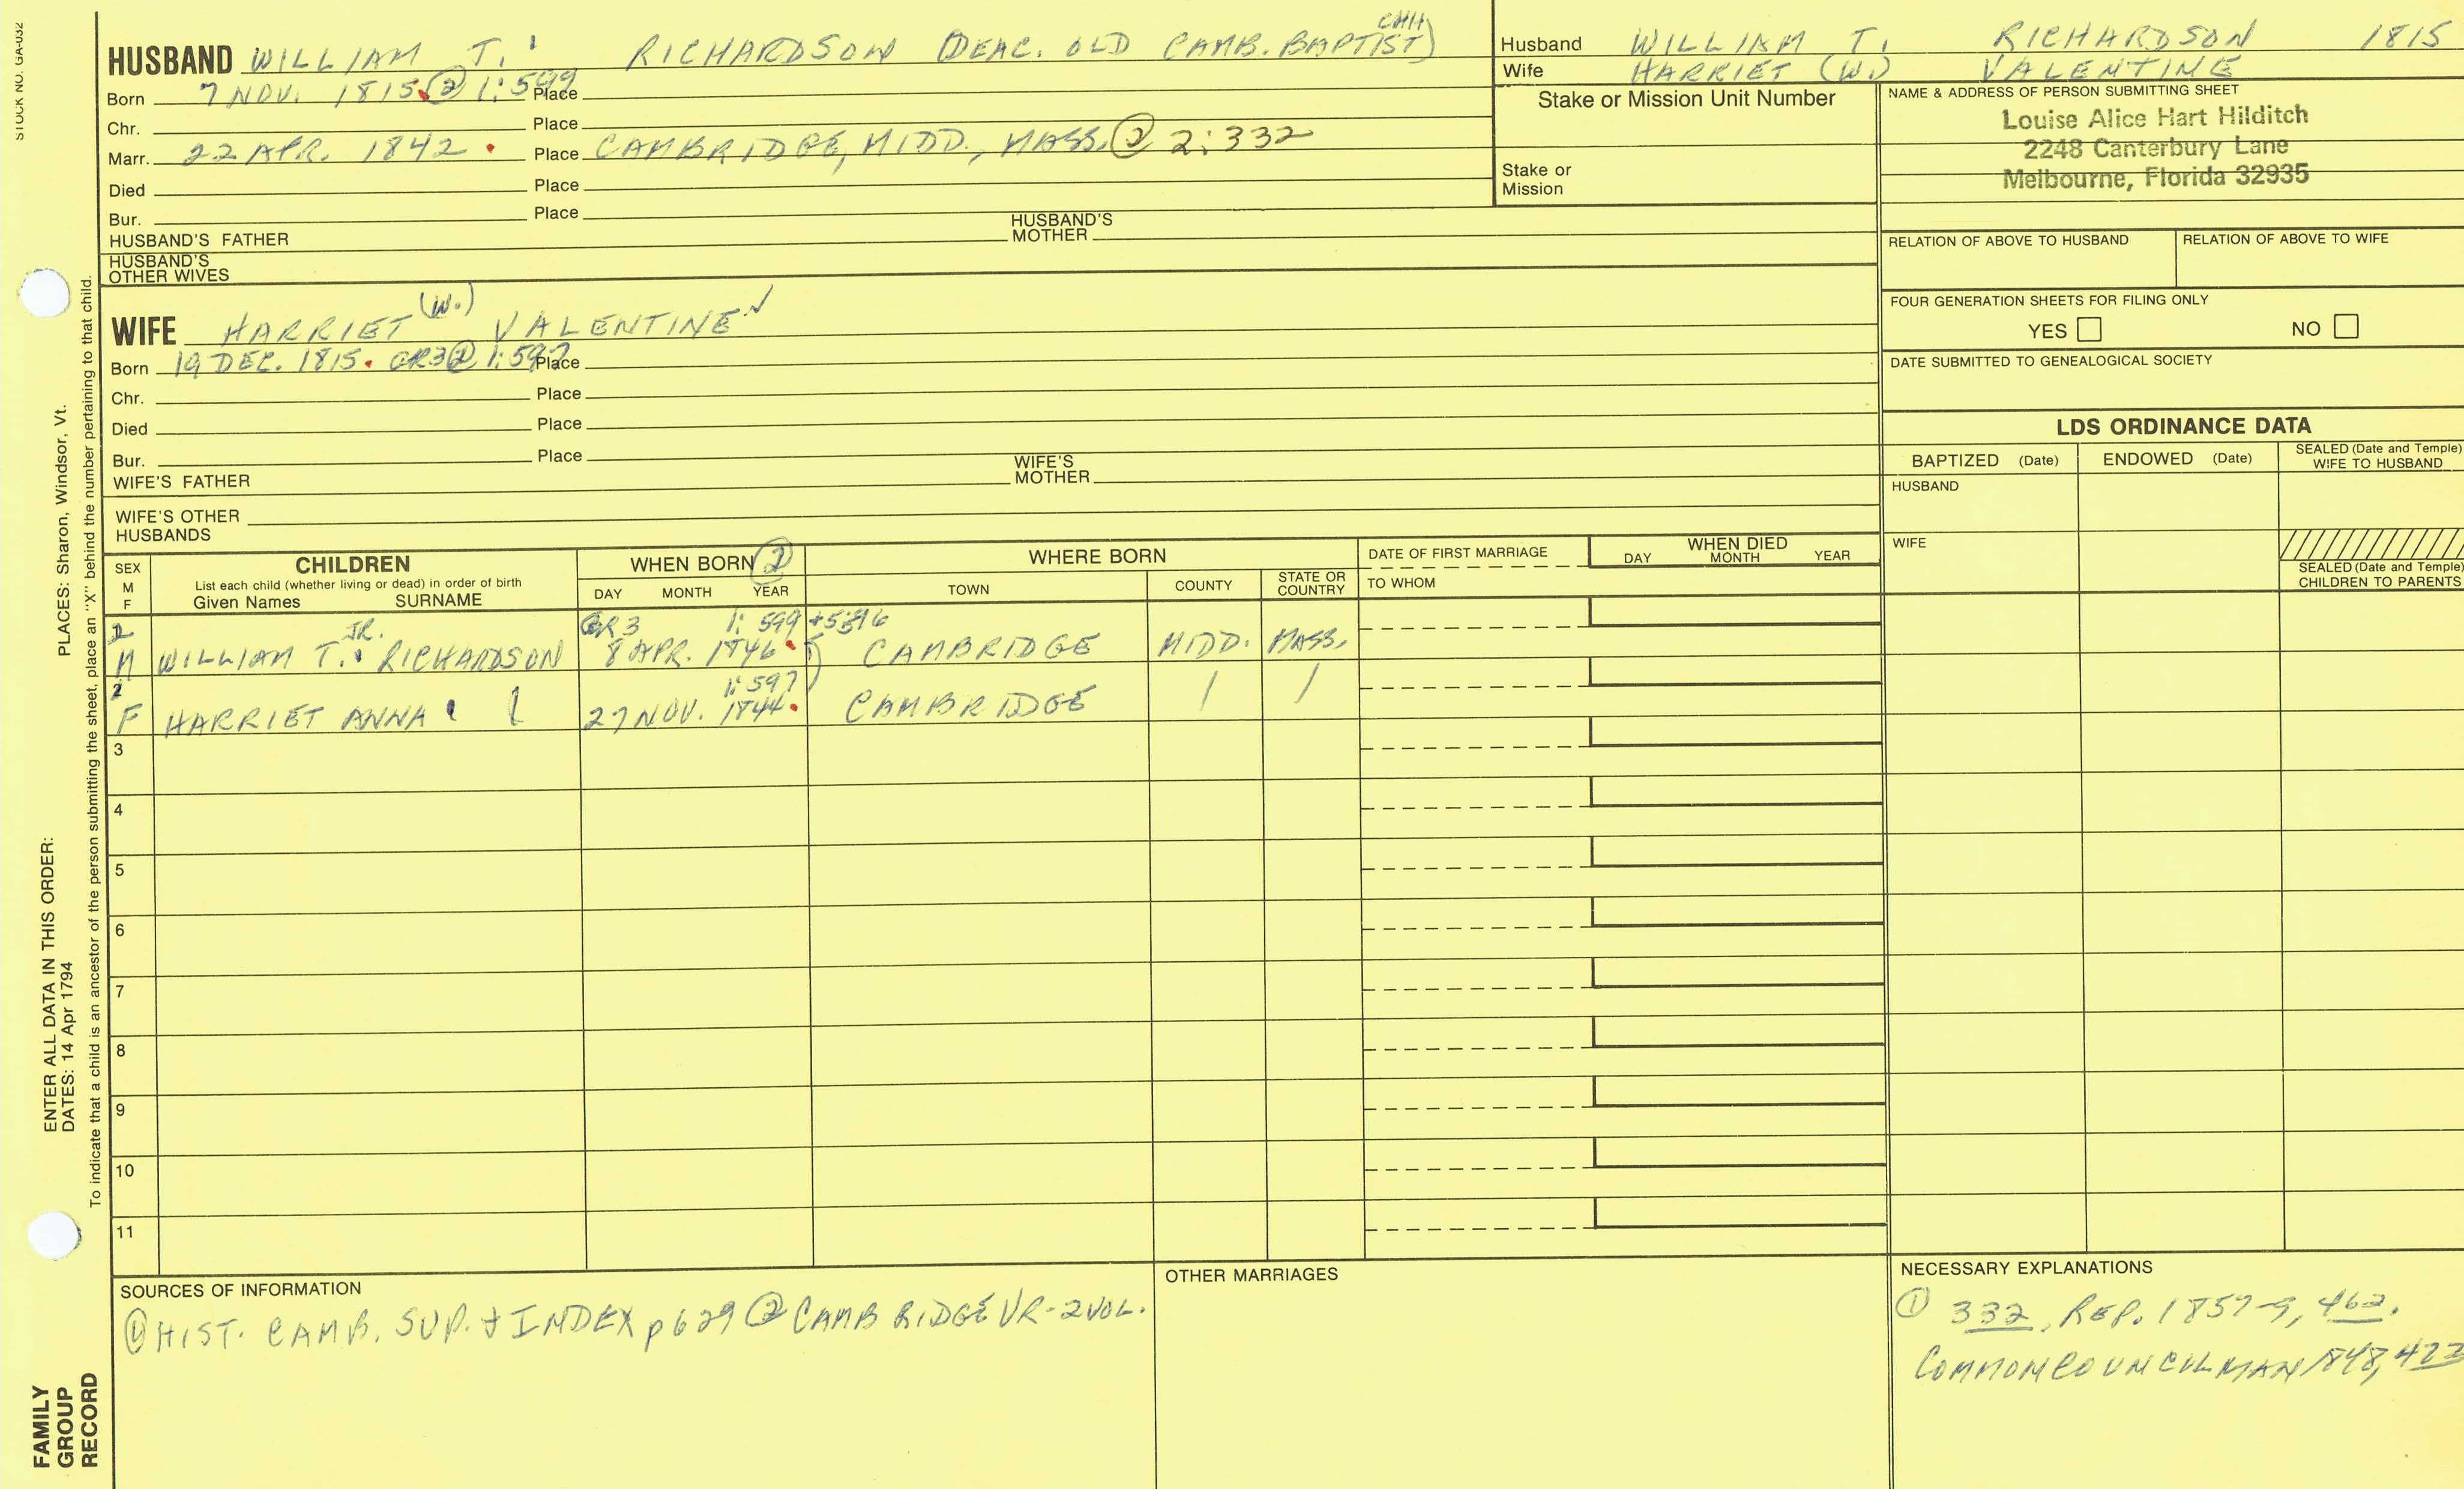 STOCK NO. GA-032
HUSBAND WILLIAM T. RICHARDSON (DEAC. OLD CAMB. BAPTIST CHH)
Born 7 NOV. 1815 ② 1:599 Place
Chr. Place
Marr. 22 APR. 1842 Place CAMBRIDGE, MIDD., MASS. ② 2:332
Died Place
Bur. Place
HUSBAND'S FATHER HUSBAND'S MOTHER
HUSBAND'S OTHER WIVES
WIFE HARRIET (W.) VALENTINE ✓
Born 19 DEC. 1815 GR3 ② 1:597 Place
Chr. Place
Died Place
Bur. Place
WIFE'S FATHER WIFE'S MOTHER
WIFE'S OTHER HUSBANDS
Husband WILLIAM T. RICHARDSON 1815
Wife HARRIET (W.) VALENTINE
Stake or Mission Unit Number
Stake or Mission
NAME & ADDRESS OF PERSON SUBMITTING SHEET
Louise Alice Hart Hilditch
2248 Canterbury Lane
Melbourne, Florida 32935
RELATION OF ABOVE TO HUSBAND RELATION OF ABOVE TO WIFE
FOUR GENERATION SHEETS FOR FILING ONLY
YES NO
DATE SUBMITTED TO GENEALOGICAL SOCIETY
LDS ORDINANCE DATA
BAPTIZED (Date) ENDOWED (Date) SEALED (Date and Temple) WIFE TO HUSBAND
HUSBAND
WIFE
SEALED (Date and Temple) CHILDREN TO PARENTS
SEX M F
CHILDREN
List each child (whether living or dead) in order of birth
Given Names SURNAME
WHEN BORN ②
DAY MONTH YEAR
WHERE BORN
TOWN COUNTY STATE OR COUNTRY
DATE OF FIRST MARRIAGE
TO WHOM
WHEN DIED
DAY MONTH YEAR
2 JR. GR3 1:599
M WILLIAM T. RICHARDSON 8 APR. 1846 CAMBRIDGE MIDD. MASS.
1:597
F HARRIET ANNA 27 NOV. 1844 CAMBRIDGE
3
4
5
6
7
8
9
10
11
SOURCES OF INFORMATION
① HIST. CAMB. SUP. + INDEX p629 ② CAMBRIDGE VR-2VOL.
OTHER MARRIAGES
NECESSARY EXPLANATIONS
① 332, REP. 1857-9, 462.
COMMON COUNCILMAN 1848,
ENTER ALL DATA IN THIS ORDER:
DATES: 14 Apr 1794 PLACES: Sharon, Windsor, Vt.
To indicate that a child is an ancestor of the person submitting the sheet, place an "X" behind the number pertaining to that child.
FAMILY
GROUP
RECORD